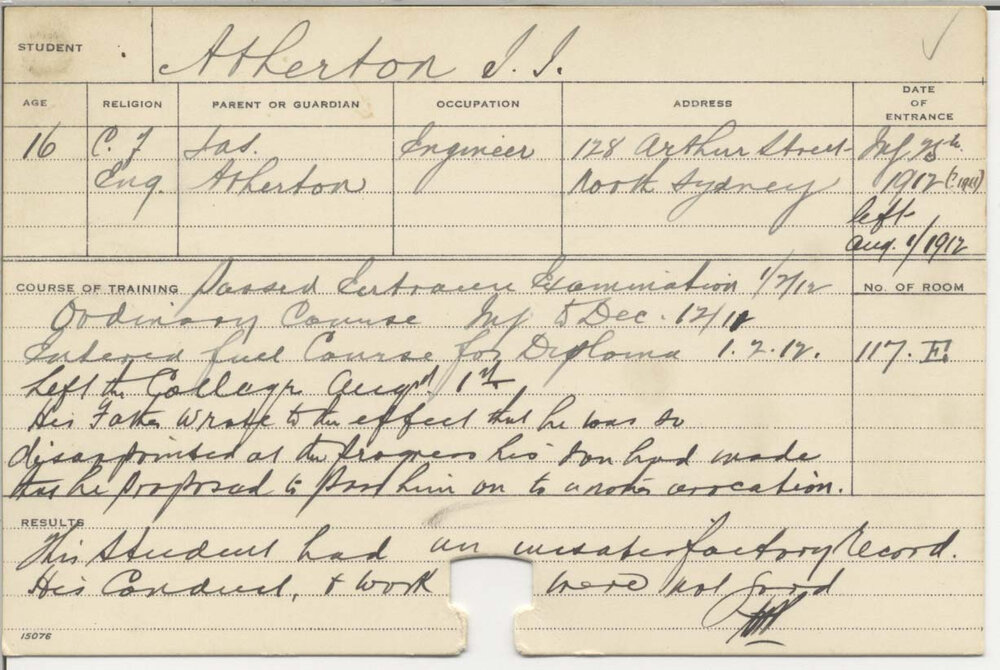 STUDENT Atherton J. J.
AGE RELIGION PARENT OR GUARDIAN OCCUPATION ADDRESS DATE OF ENTRANCE
16 C. of Jas. Engineer 128 Arthur Street 25th
Eng. Atherton North Sydney 1912 (? 1911)
left
Aug. 1/1912
COURSE OF TRAINING Passed Entrance Examination 1/2/12 No. OF ROOM
Ordinary Course to Dec.
Entered full Course for Diploma 1.2.12. 117. E.
Left the College Augst 1st
His Father wrote to the effect that he was so
disappointed at the progress his son had made
that he proposed to put him on to another avocation.
RESULTS
This Student had an unsatisfactory record.
His Conduct, & work were not good
15076